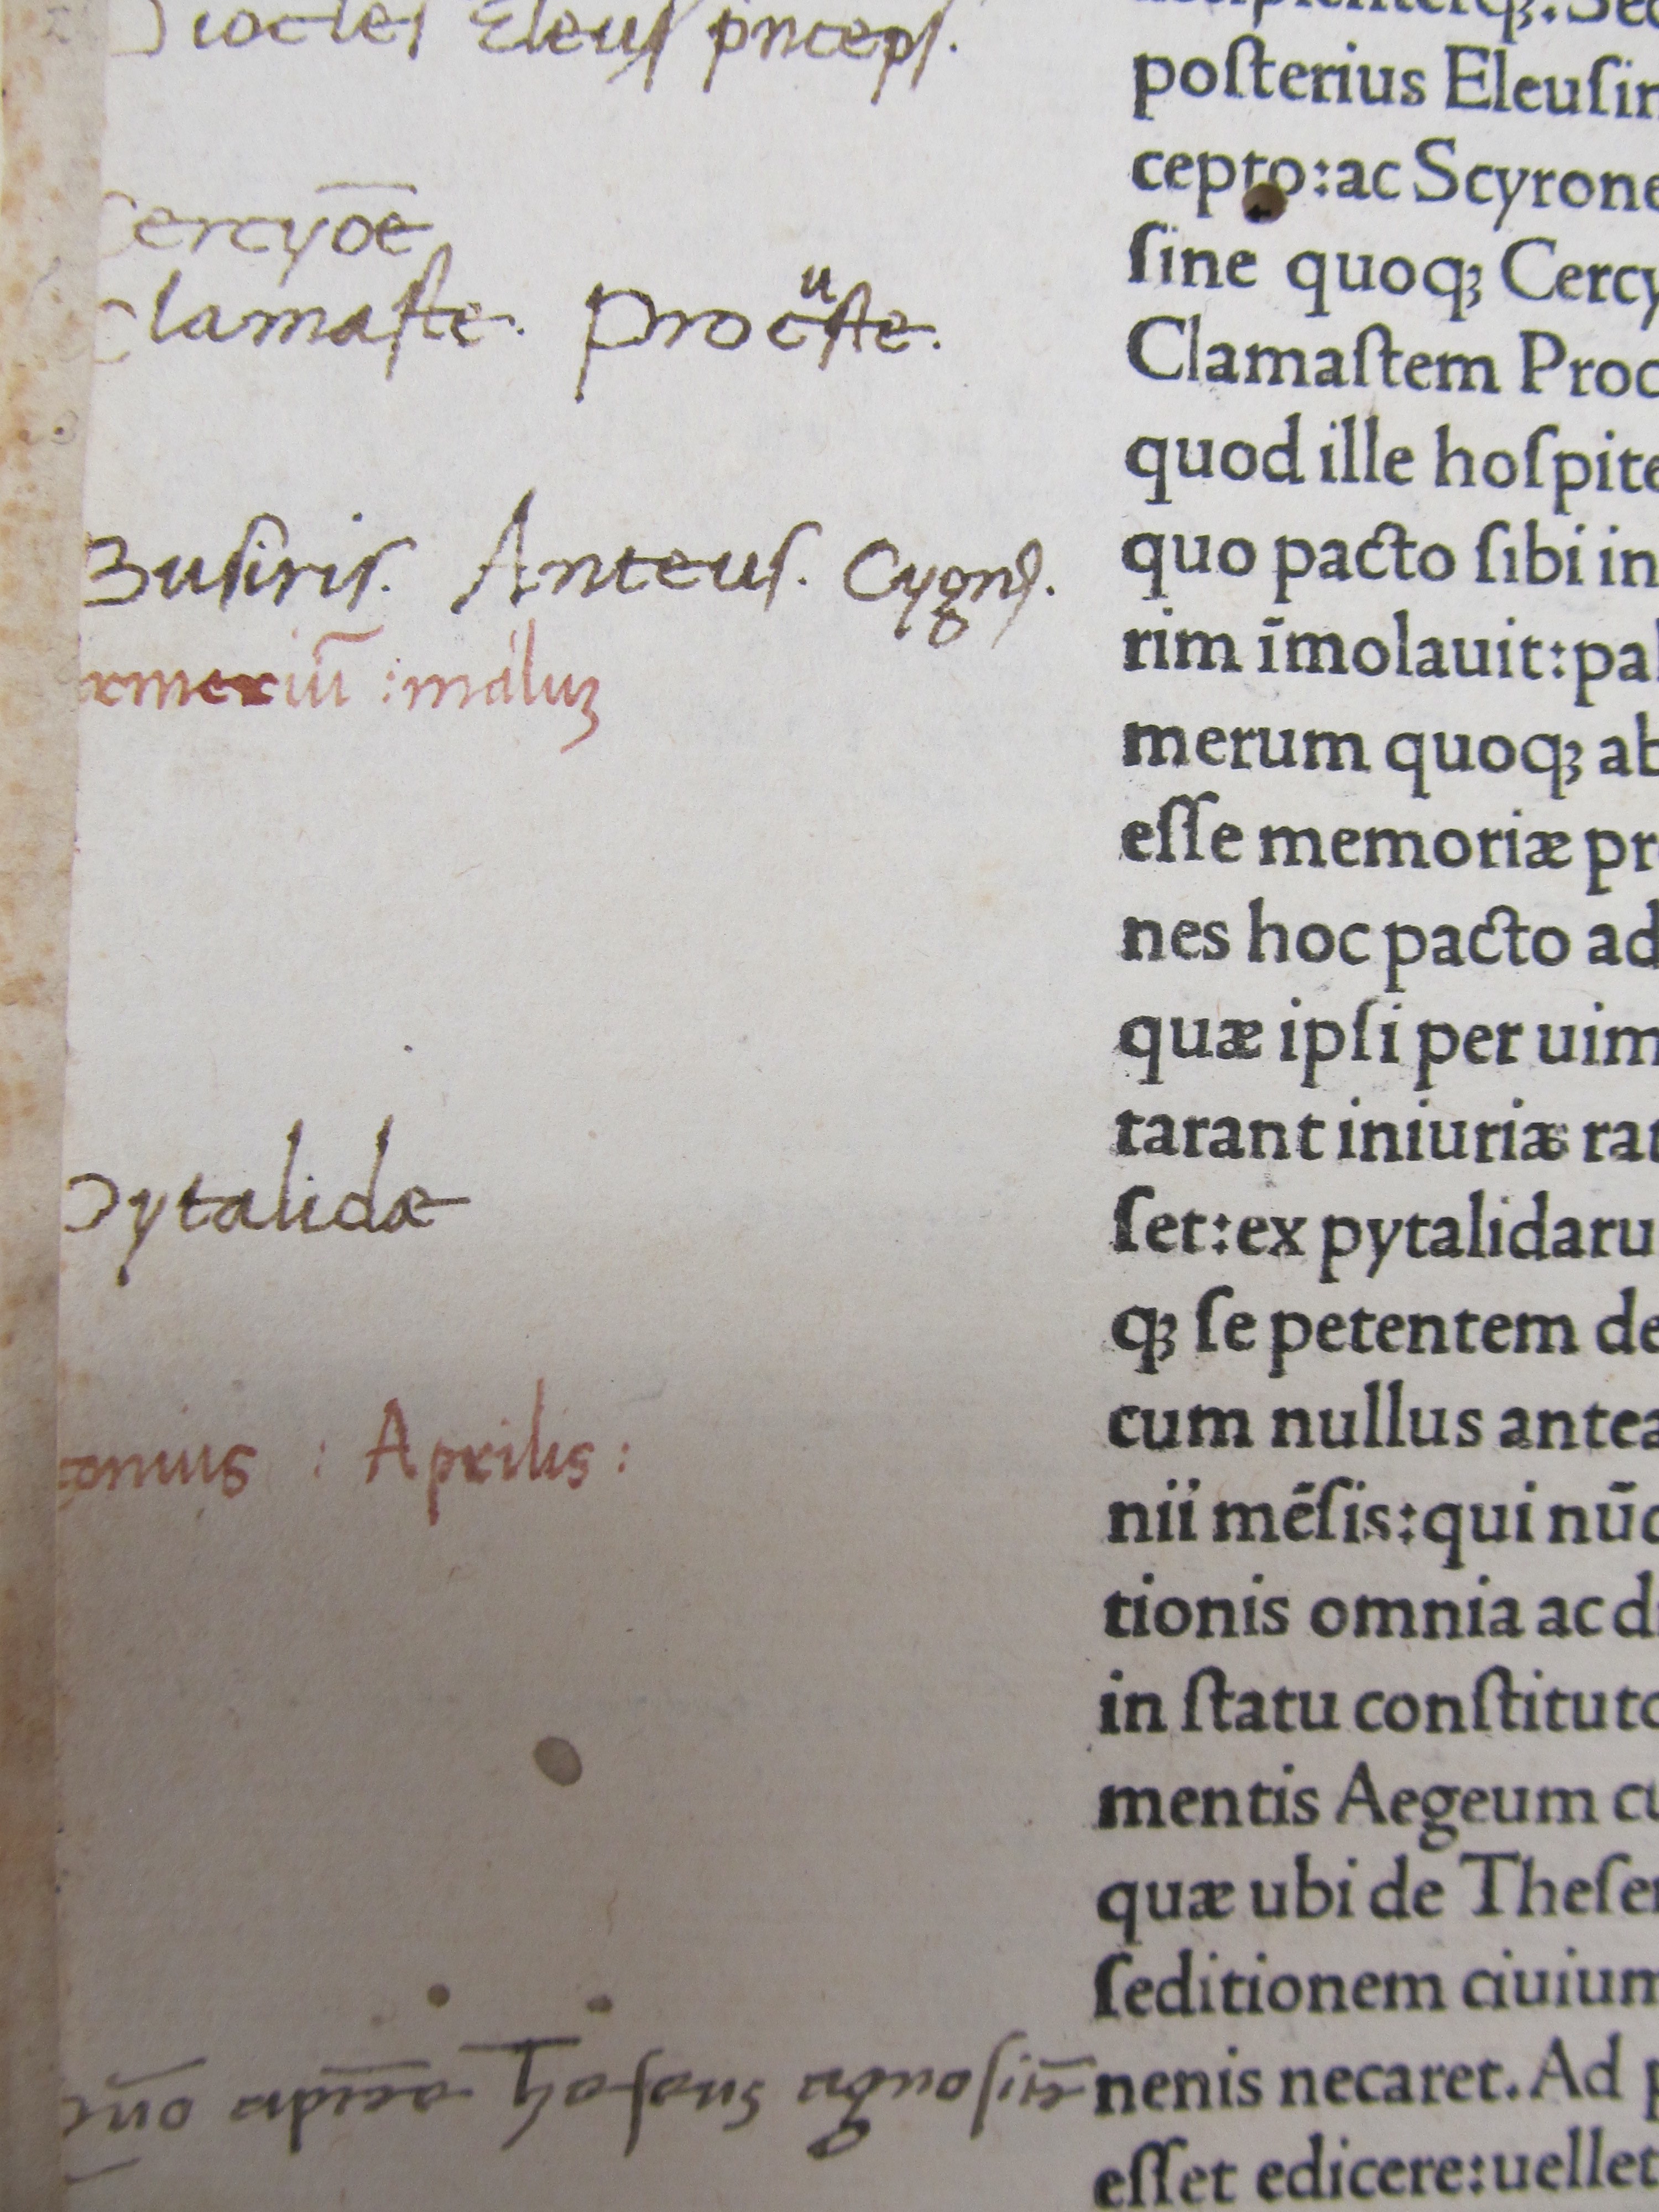 Diocles Eleuſ pnceps.
Cercyōe
Clamaſte. Procuſte.
Busiris. Anteus. Cygnꝰ.
ermeriū : maluꝫ
Pytalidæ
onius : Aprilis :
agnosiť
poſterius Eleuſin
cepto:ac Scyrone
ſine quoqꝫ Cercy
Clamaſtem Proc
quod ille hoſpite
quo pacto ſibi in
rim īmolauit:pal
merum quoqꝫ ab
eſſe memoriæ pr
nes hoc pacto ad
quæ ipſi per uim
tarant iniuriæ rat
ſet:ex pytalidaru
qꝫ ſe petentem de
cum nullus antea
nii mēſis:qui nūc
tionis omnia ac d
in ſtatu conſtituto
mentis Aegeum cu
quæ ubi de Theſe
ſeditionem ciuium
nenis necaret. Ad p
eſſet edicere:uellet